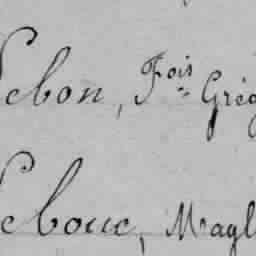 Lebon, Fois Grég
Lebouc, Magl